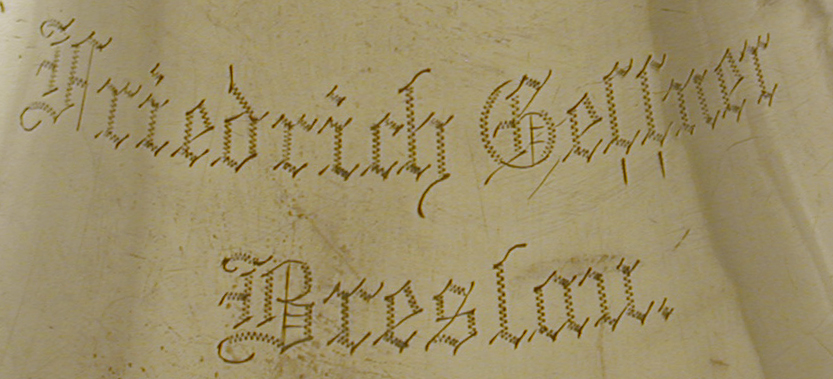 Friedrich Geſſner
Breslau.